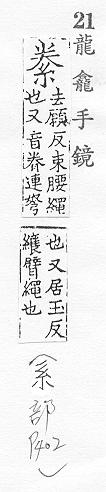 21
龍龕手鏡
絭去願反束腰繩
也又音眷連弩
也又居玉反
纕臂繩也
(糸部
P402)